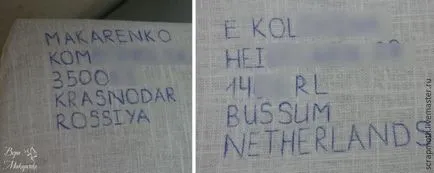 MAKARENKO
KOM
3500
KRASNODAR
ROSSIYA
E KOL
HEI
14 RL
BUSSUM
NETHERLANDS
scrapmoti.livemaster.ru